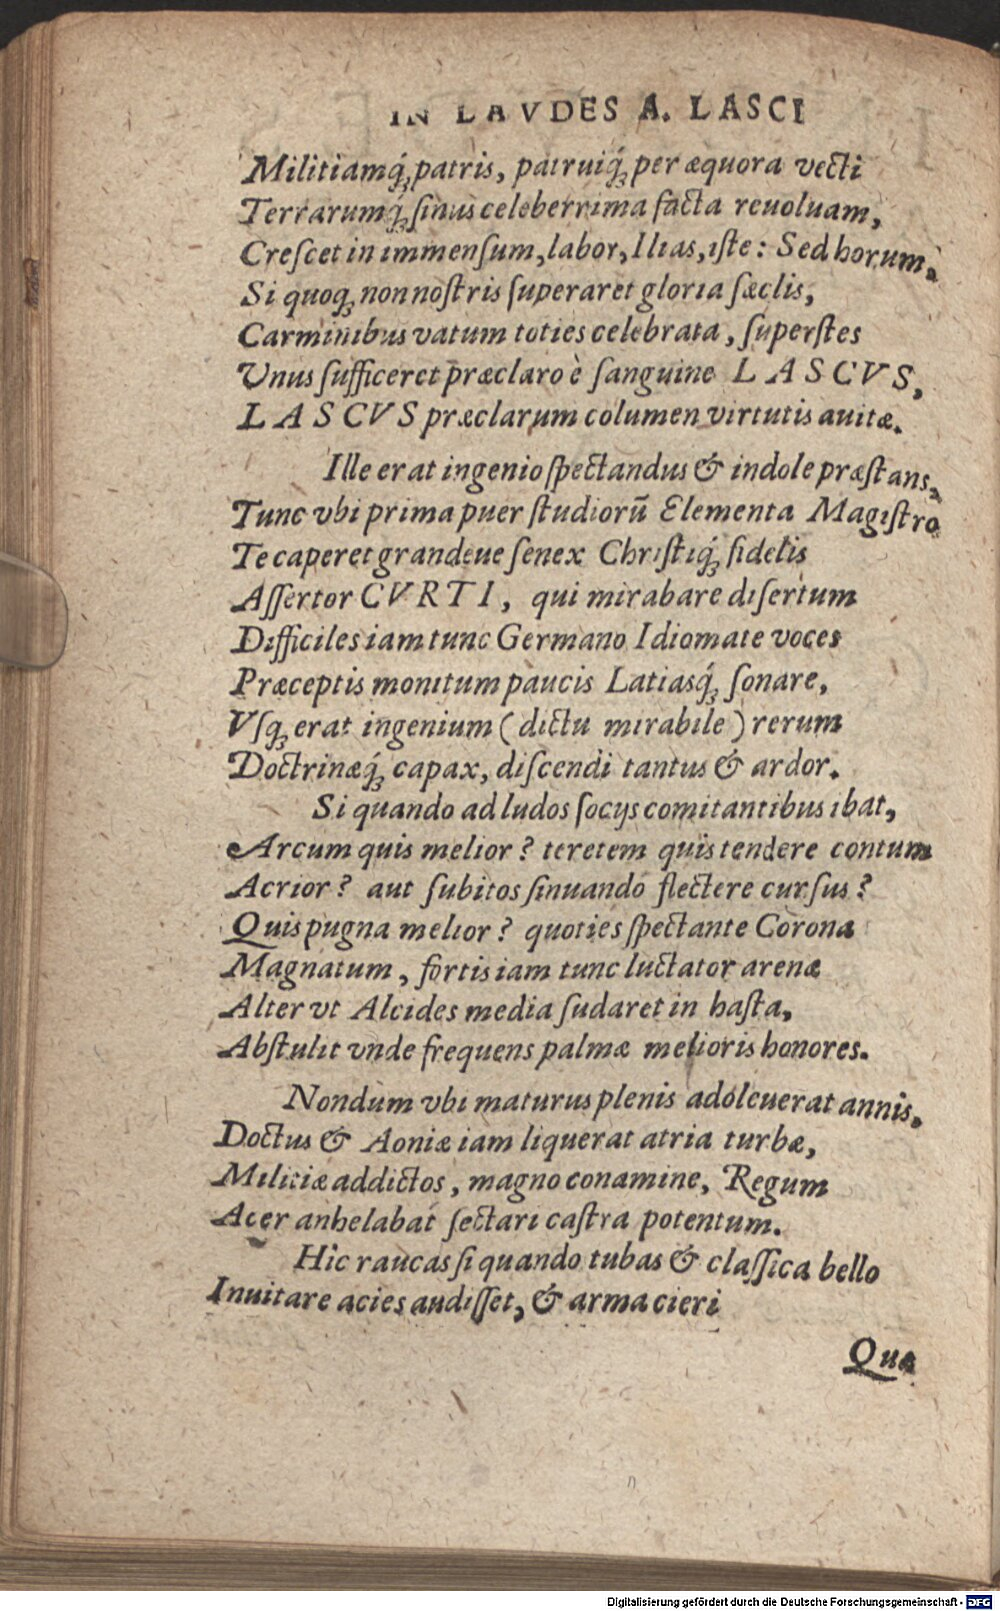 IN LAVDES A. LASCI
Militiamq́ꝫ patris, patruiq́ꝫ per æquora vecti
Terrarumq́ꝫ ſinus celeberrima facta reuoluam,
Creſcet in immenſum, labor, Ilias, iſte: Sed horum,
Si quoqꝫ non noſtris ſuperaret gloria ſæclis,
Carminibus vatum toties celebrata, ſuperſtes
Unus ſufficeret præclaro è ſanguine LASCVS,
LASCVS præclarum columen virtutis auitæ.
Ille erat ingenio ſpectandus & indole præſtans,
Tunc vbi prima puer ſtudiorũ Elementa Magiſtro
Te caperet grandeue ſenex Chriſtiq́ꝫ fidelis
Aſſertor CVRTI, qui mirabare diſertum
Difficiles iam tunc Germano Idiomate voces
Præceptis monitum paucis Latiasq́ꝫ ſonare,
Vſqꝫ erat ingenium (dictu mirabile) rerum
Doctrinæq́ꝫ capax, diſcendi tantus & ardor.
Si quando ad ludos ſocijs comitantibus ibat,
Arcum quis melior? teretem quis tendere contum
Acrior? aut ſubitos ſinuando flectere curſus?
Quis pugna melior? quoties ſpectante Corona
Magnatum, fortis iam tunc luctator arenæ
Alter vt Alcides media ſudaret in haſta,
Abſtulit vnde frequens palmæ melioris honores.
Nondum vbi maturus plenis adoleuerat annis,
Doctus & Aoniæ iam liquerat atria turbæ,
Militiæ addictos, magno conamine, Regum
Acer anhelabat ſectari caſtra potentum.
Hic raucas ſi quando tubas & claſſica bello
Inuitare acies audiſſet, & arma cieri
Qua
Digitalisierung gefördert durch die Deutsche Forschungsgemeinschaft - DFG